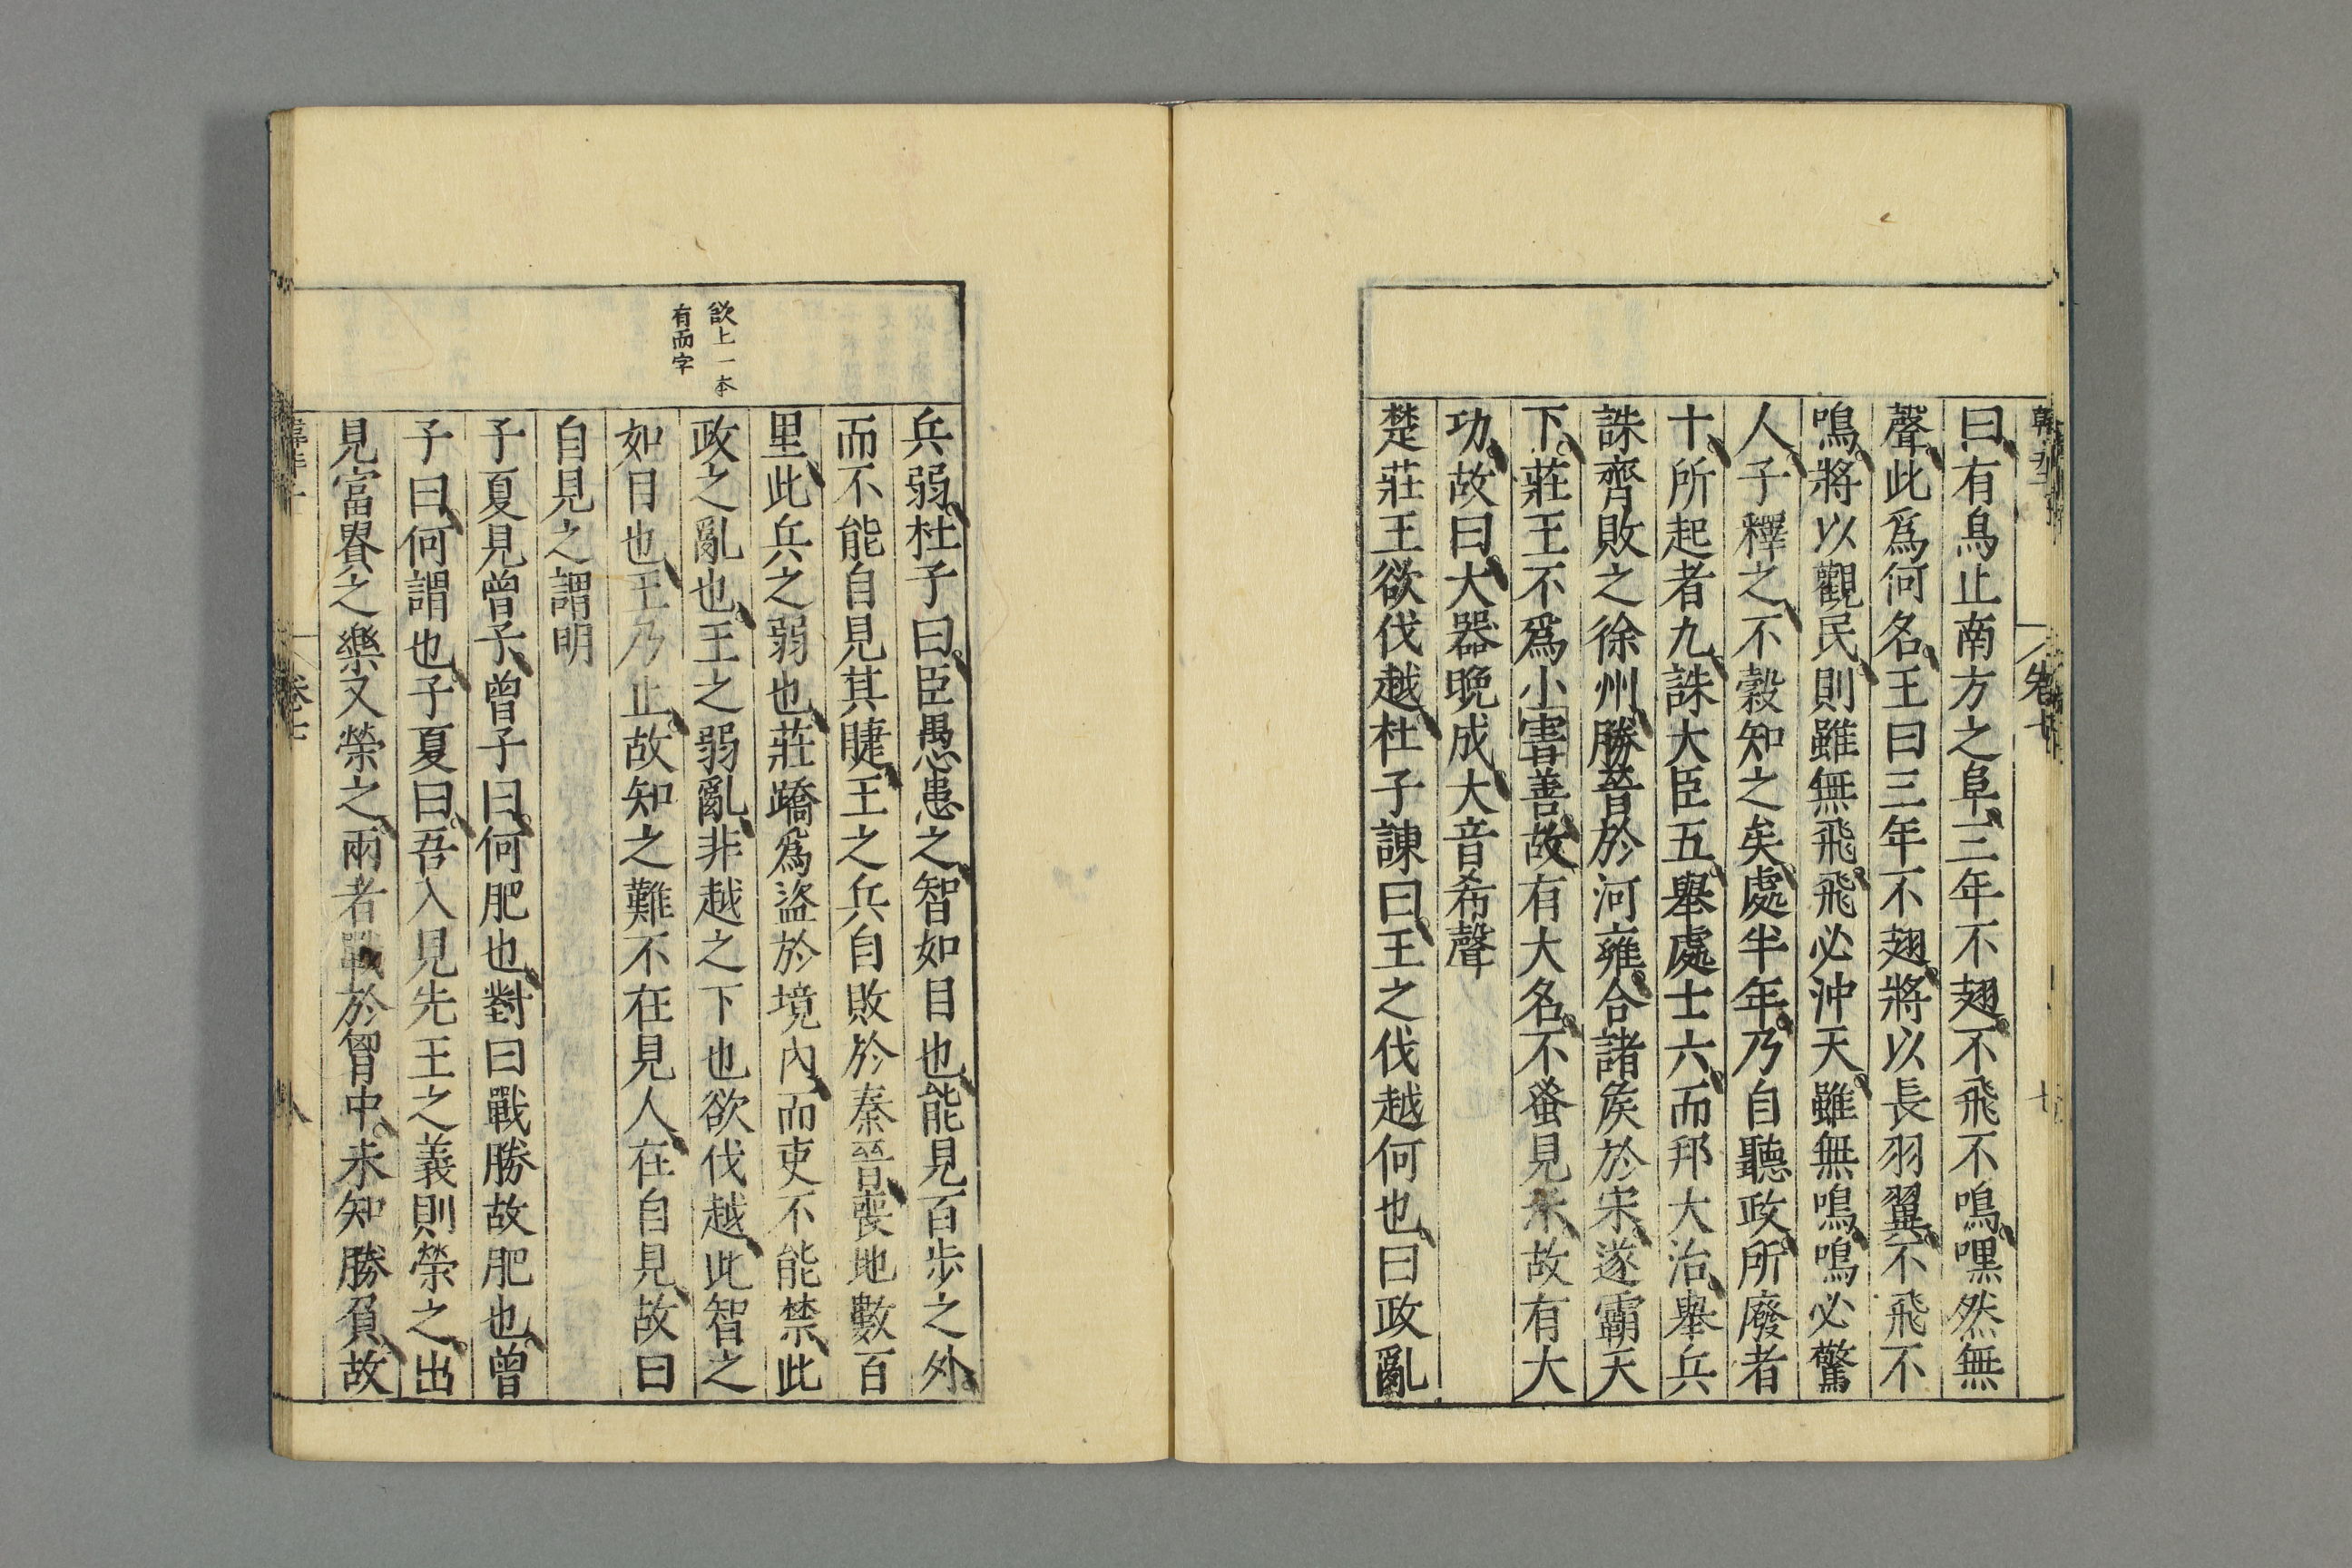 曰有鳥止南方之阜三年不翅不飛不鳴嘿然無
聲此爲何名王曰三年不翅將以長羽翼不飛不
鳴將以觀民則雖無飛飛必沖天雖無鳴鳴必驚
人子釋之不糓知之矣處半年乃自聽政所廢者
十所起者九誅大臣五舉處士六而邦大治舉兵
誅齊敗之徐州勝晉於河雍合諸矦於宋遂霸天
下莊王不爲小害善故有大名不蚤見示故有大
功故曰大器晚成大音希聲
楚莊王欲伐越杜子諫曰王之伐越何也曰政亂
兵弱杜子曰臣愚患之智如目也能見百步之外
而不能自見其睫王之兵自敗於秦晉喪地數百
里此兵之弱也莊蹻爲盜於境內而吏不能禁此
政之亂也王之弱亂非越之下也欲伐越此智之
如目也王乃止故知之難不在見人在自見故曰
自見之謂明
子夏見曾子曾子曰何肥也對曰戰勝故肥也曾
子曰何謂也子夏曰吾入見先王之義則榮之出
見富貴之樂又榮之兩者戰於胷中未知勝負故
欲上一本
有而字
卷七
七
卷七
八